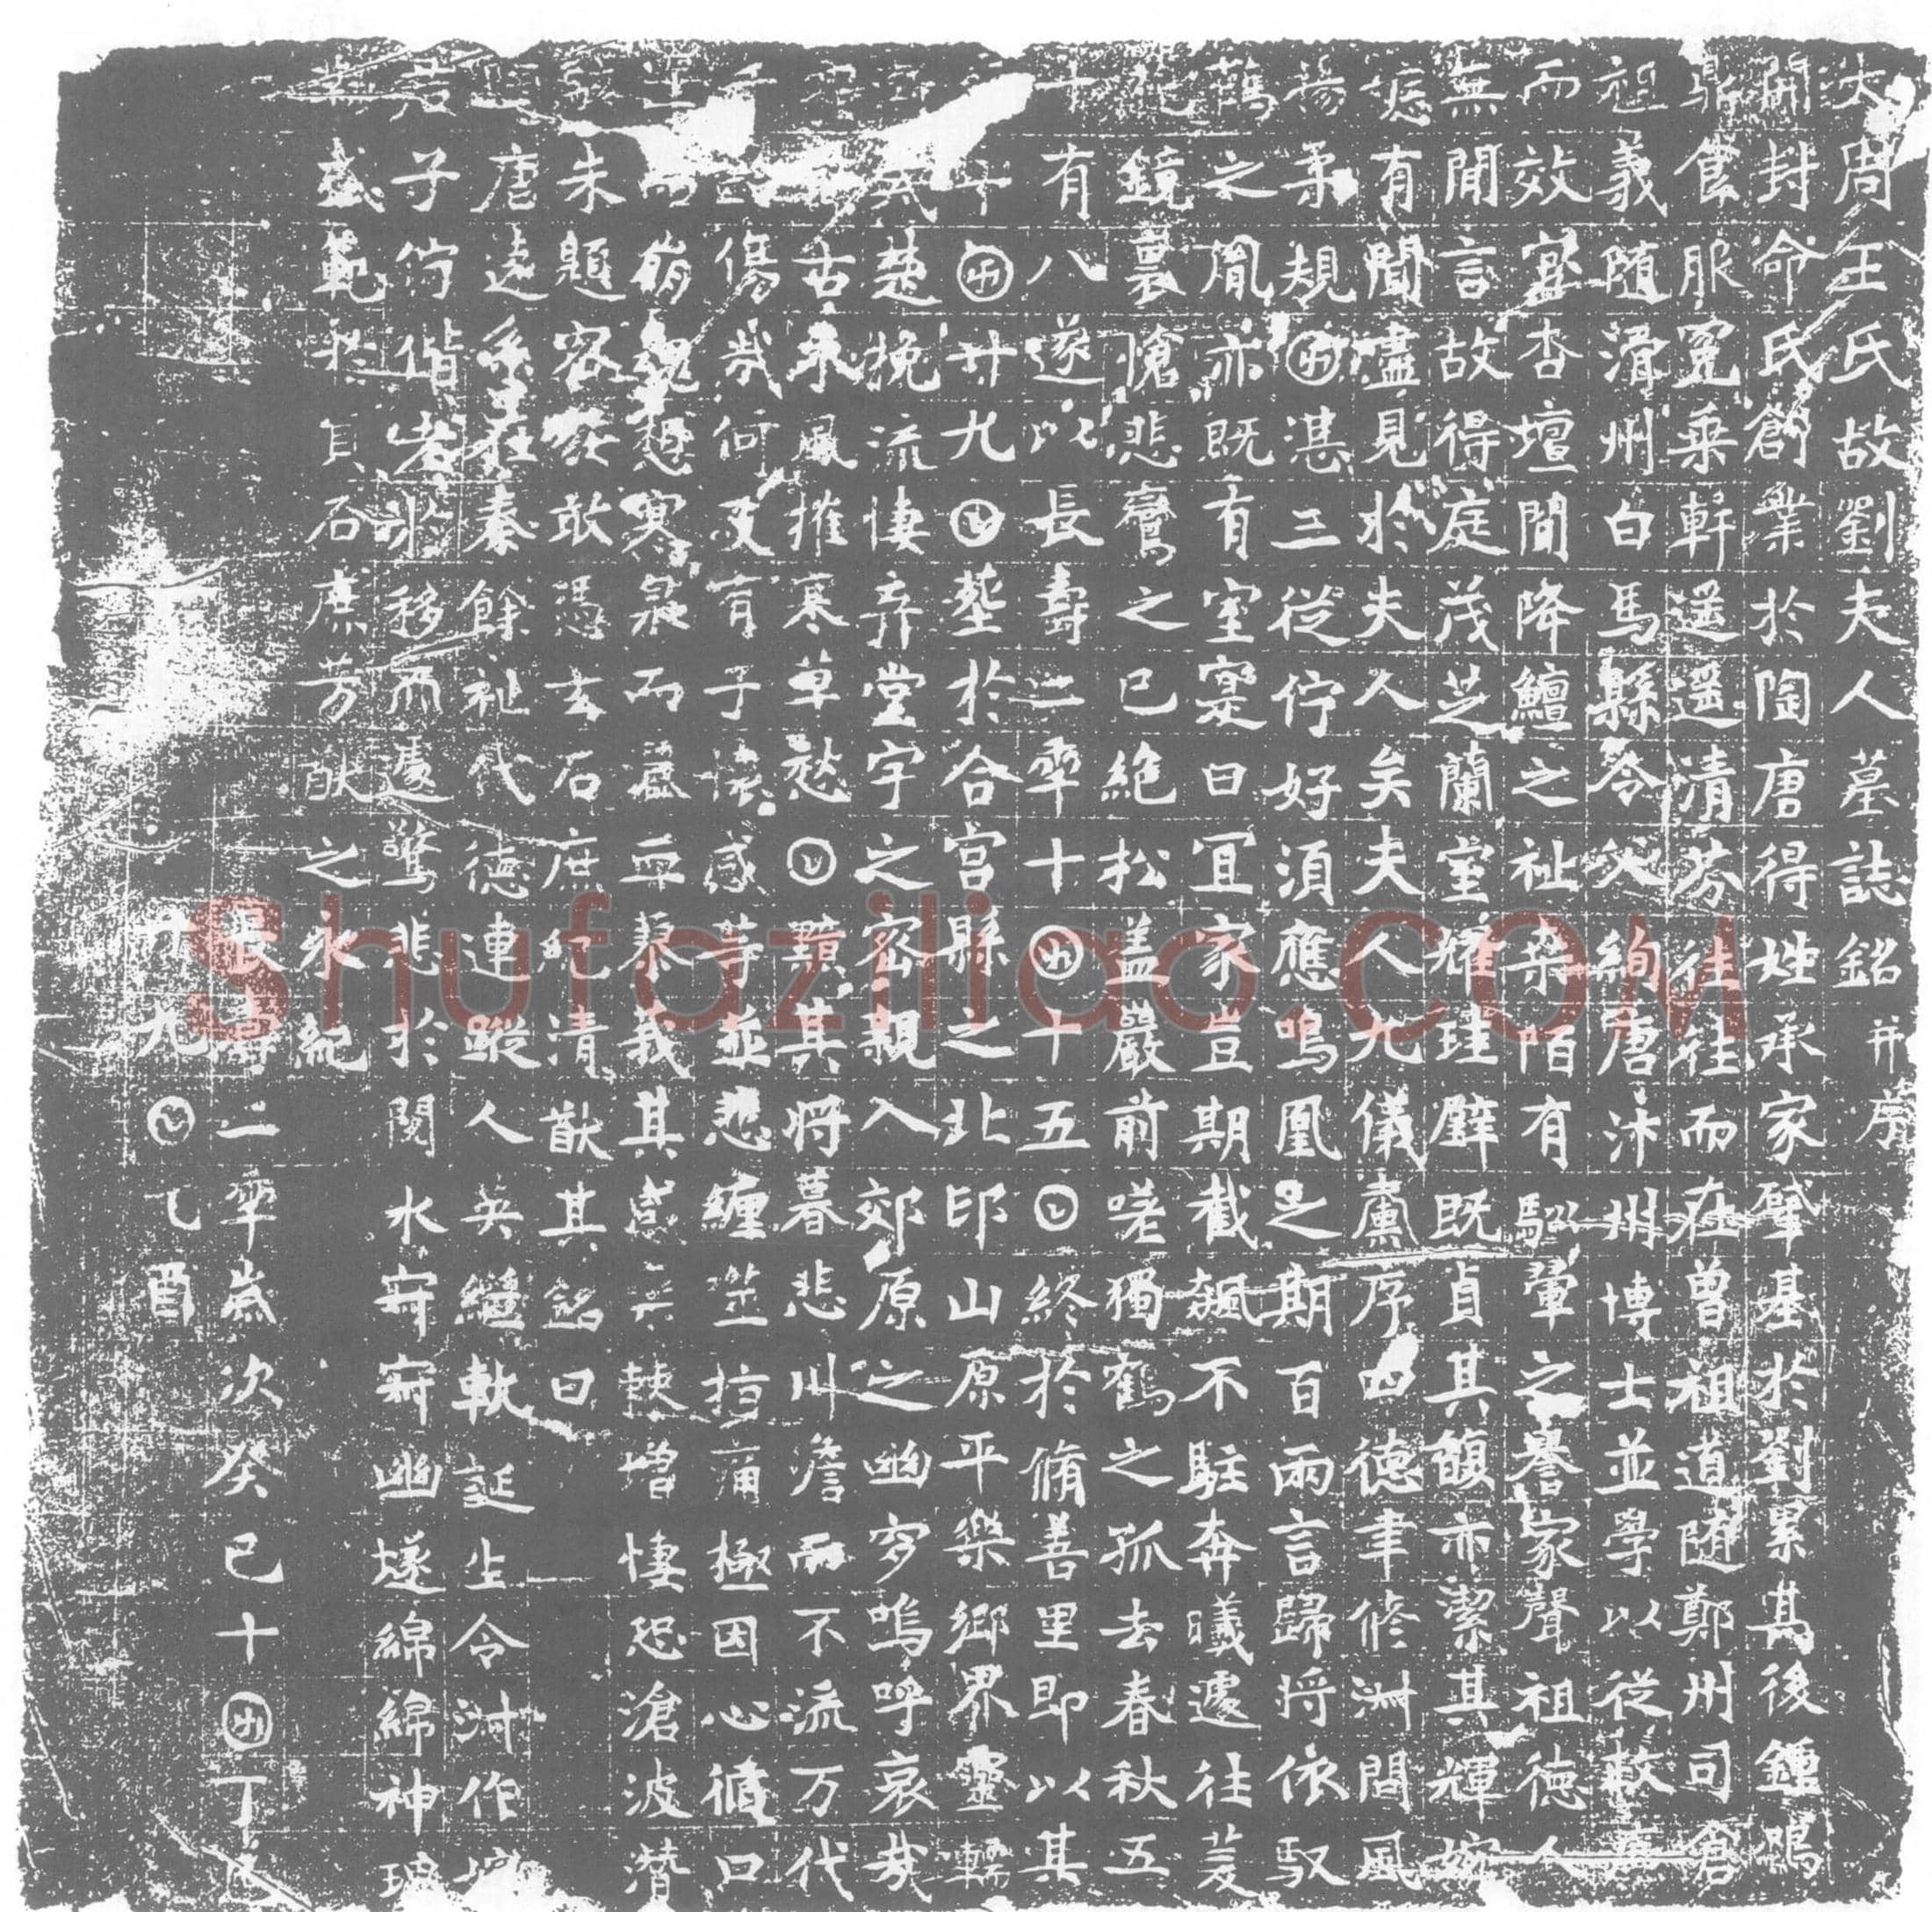 大周王氏故劉夫人墓誌銘并序
開封命氏創業於陶唐得姓承家肇基於劉累其後鍾鳴
鼎食服冕乘軒遥遥清芬往往而在曾祖道随鄭州司倉
祖義随滑州白馬縣令父絢唐沐州博士並學以從政
而效官杏壇間降鱣之祉階有馴翬之譽家聲祖德人
無閒言故得庭茂芝蘭室耀珪璧既貞其馥亦潔其輝婉
有聞盡見於夫人矣夫人九儀薰序四德聿修洲問風
揚柔規囝湛三從佇好須應鳴凰之期百兩言歸將依馭
鶴之胤亦既有室寔曰宜家豈期截飆不駐奔曦遽往菱
花鏡裏愴悲鸞之已絕松盖巖前嗟獨鶴之孤去春秋五
十有八遂以長壽二𠡦十囝十五𡆠終於脩善里即以其
𠡦囝廿九𡆠葬於合宮縣之北邙山原平樂鄉界靈轜
戒楚挽流悽弃堂宇之密親入郊原之幽穸嗚呼哀哉
古木風摧寒草愁𡆠曛其將暮悲川澹而不流万代
傷哉何及有子懷感等並悲纏痛極因心循口
崩魂想寒泉而血慕我其棘增悽恐滄波潜
朱題敢憑玄石庶紀清猷其銘曰
唐遠系在秦餘祉代德連蹤人英繼軌誕生令淑作嬪
君子佇偕老移而遽驚悲於閱水寂寂幽燧綿綿神理
式範於貞石庶芳猷之永紀
長壽二𠡦歲次癸巳十囝丁巳
朔廿九𡆠乙酉